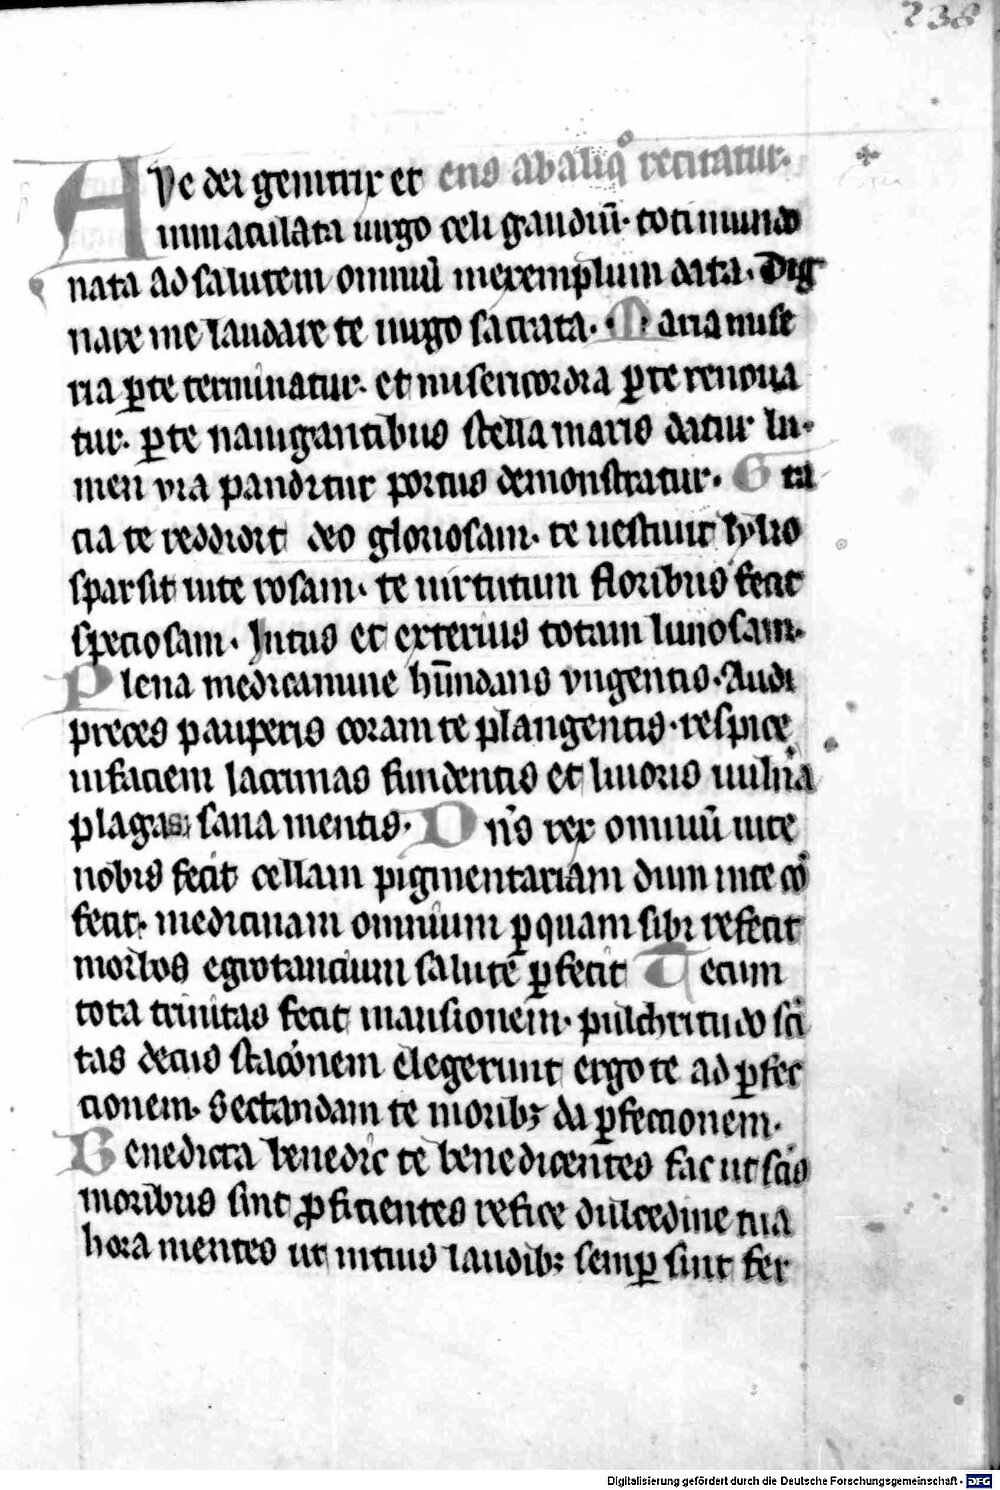 238
AVe dei genitrix et ens ab aliqͦ recitatur.
inmaculata uirgo celi gaudiū. toti mundo
nata ad salutem omniū inexemplum data. Dig
nare me laudare te uirgo sacrata. Maria mise
ria ꝑ te terminatur. et misericordia ꝑ te renoua
tur. ꝑ te nauigantibus stella maris datur lu
men via panditur portus demonstratur. Gra
cia te reddidit deo gloriosam. te uestiuit lylio
sparsit inte rosam. te uirtutum floribus fecit
speciosam. Intus et exterius totam luminosam.
Plena medicamine hūndans vngentis. Audi
preces pauperis coram te plangentis. respice
infaciem lacrimas fundentis et liuoris uulnͣa
plagas sana mentis. Dn̄s rex omniū inte
nobis fecit cellam pigmentariam dum inte cō
fecit. medicinam omnium ꝑ quam sibi refecit
morbos egrotancium salute ꝑfecit Tecum
tota trinitas fecit mansionem. pulchritudo sci
tas decus stacōnem elegerunt ergo te ad ꝑfec
cionem. Sectandam te moribꝫ da ꝑfeccionem.
Benedicta benedic te benedicentes fac ut scīs
moribus sint ꝓficientes refice dulcedine tua
hora mentes ut intius laudibꝫ semꝑ sint fer
Digitalisierung gefördert durch die Deutsche Forschungsgemeinschaft - DFG